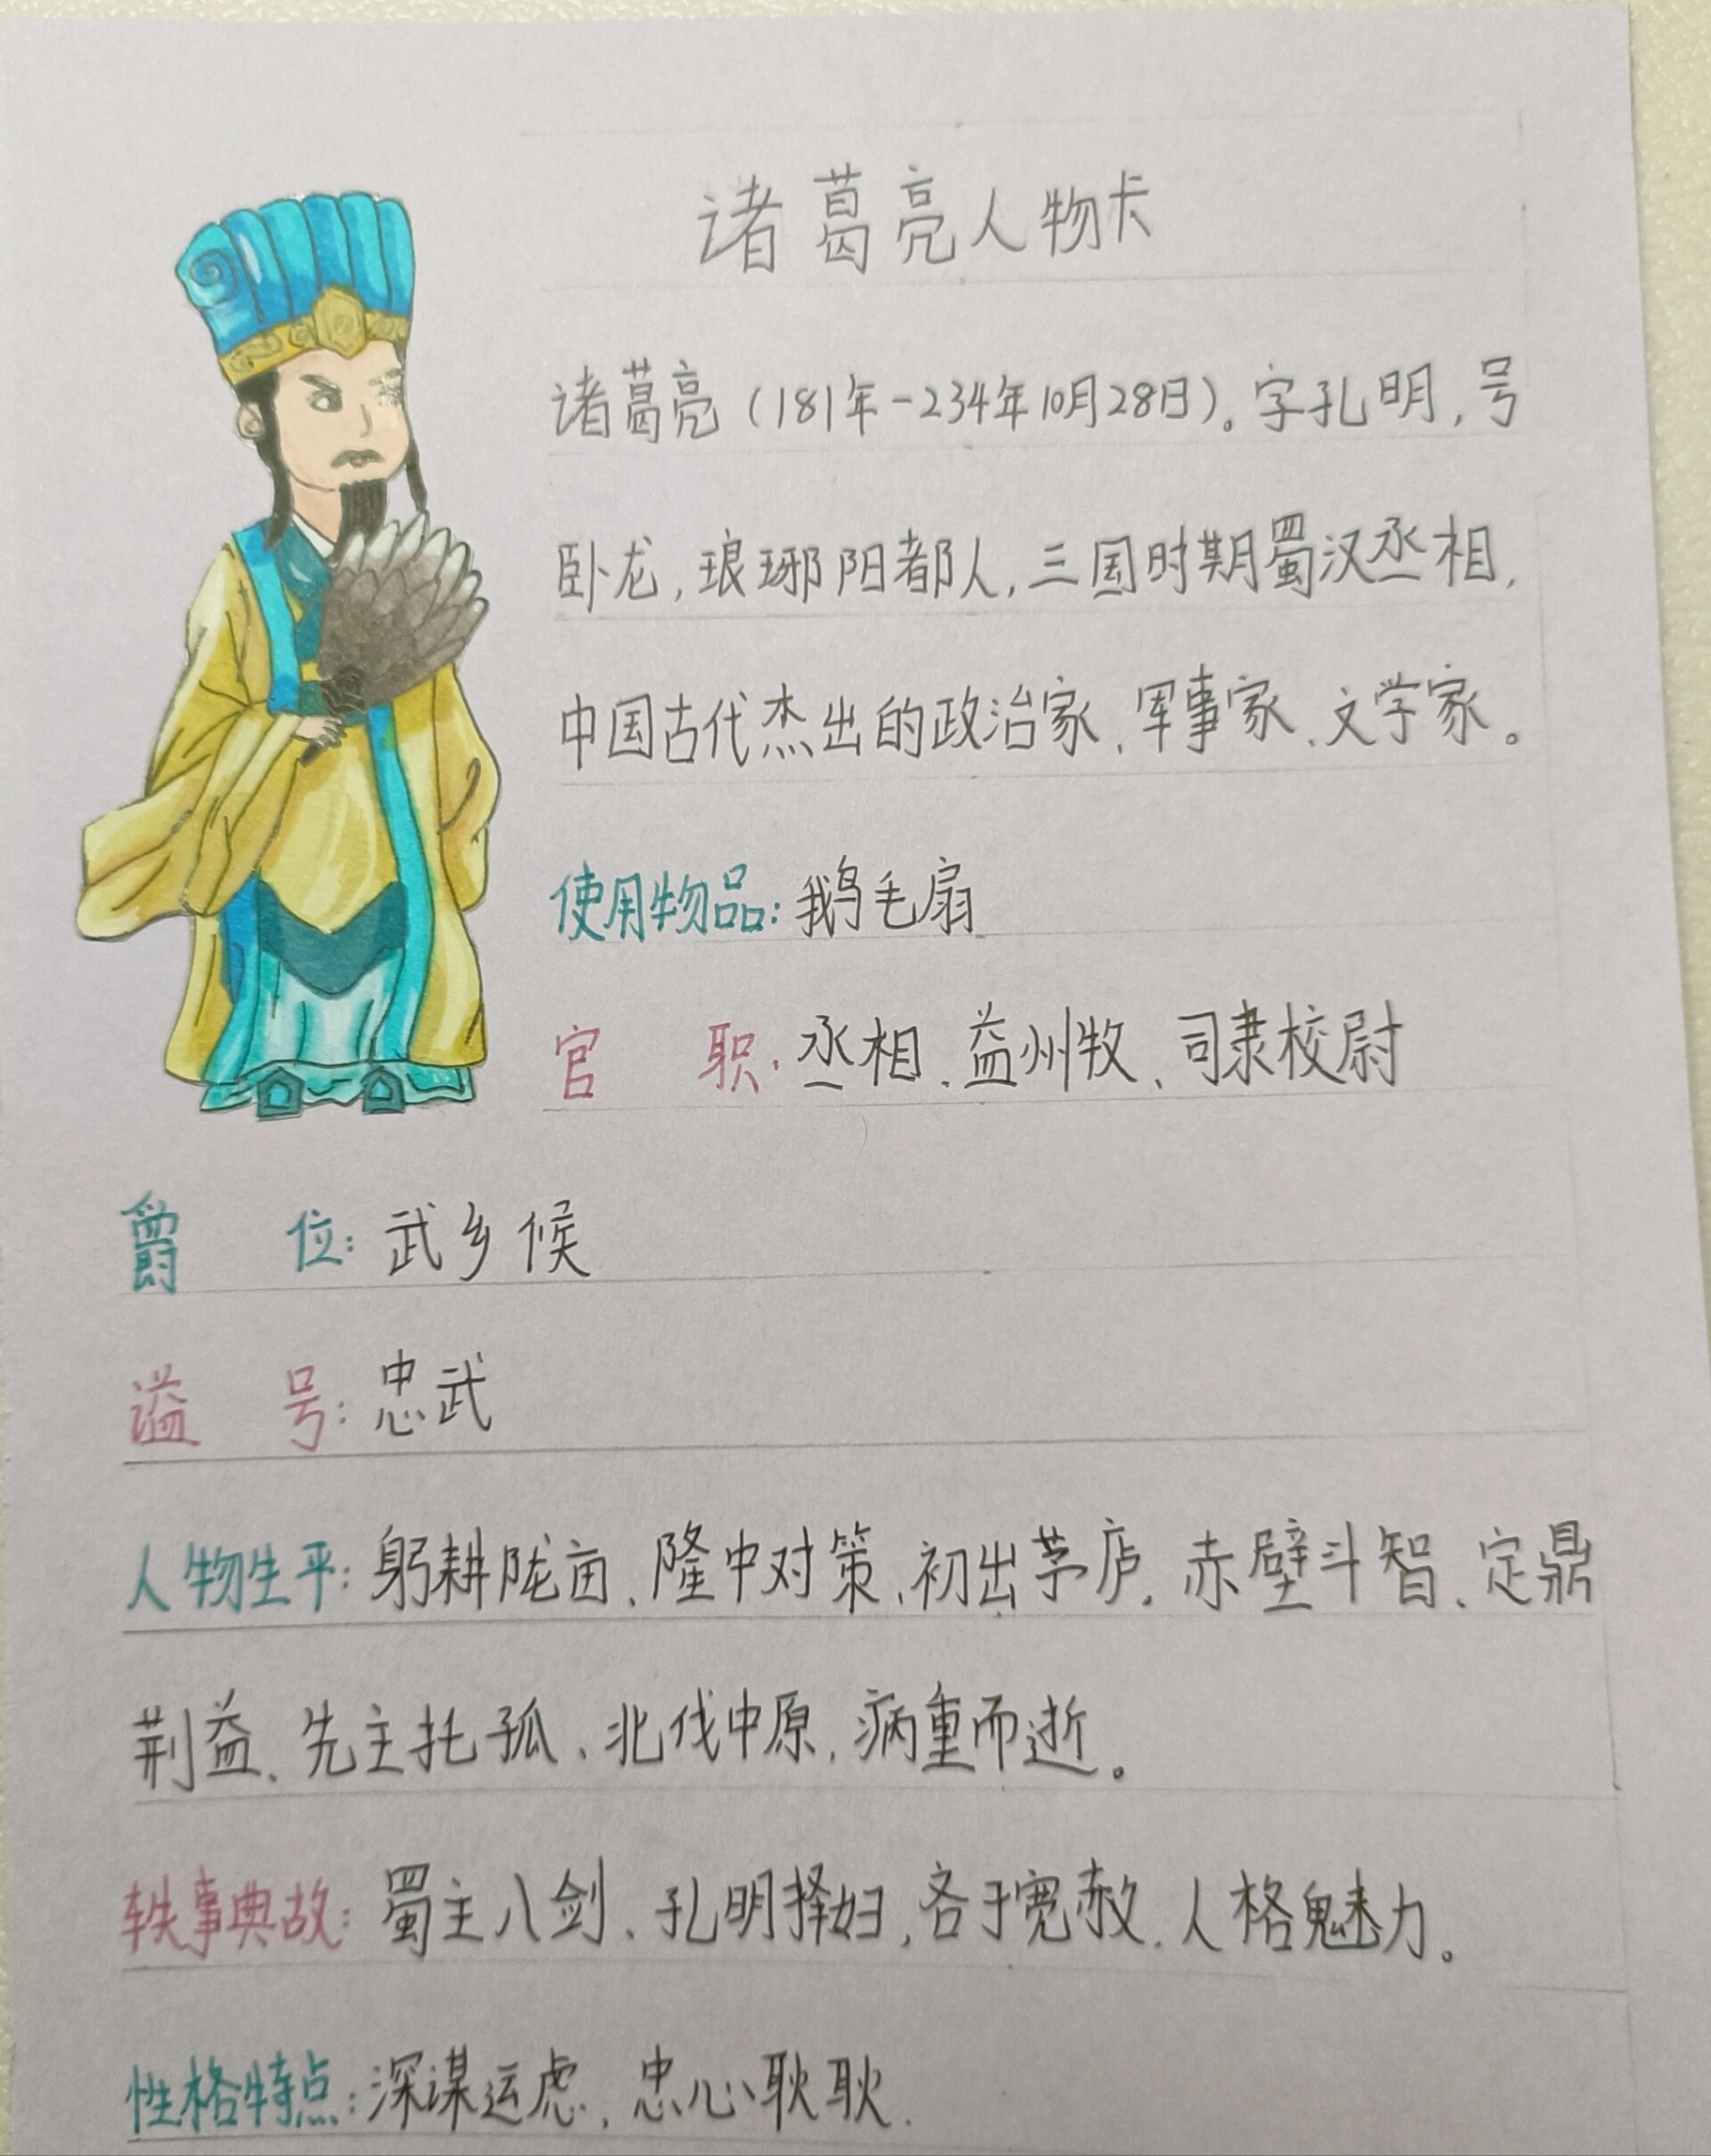 诸葛亮人物卡
诸葛亮(181年-234年10月28日)。字孔明,号
卧龙,琅琊阳都人,三国时期蜀汉丞相,
中国古代杰出的政治家、军事家、文学家。
使用物品:鹅毛扇
官 职:丞相、益州牧、司隶校尉
爵 位:武乡候
谥 号:忠武
人物生平:躬耕陇亩、隆中对策、初出茅庐、赤壁斗智、定鼎
荆益、先主托孤、北伐中原、病重而逝。
轶事典故:蜀主八剑、孔明择妇、吝于宽赦、人格魅力。
性格特点:深谋远虑、忠心耿耿.